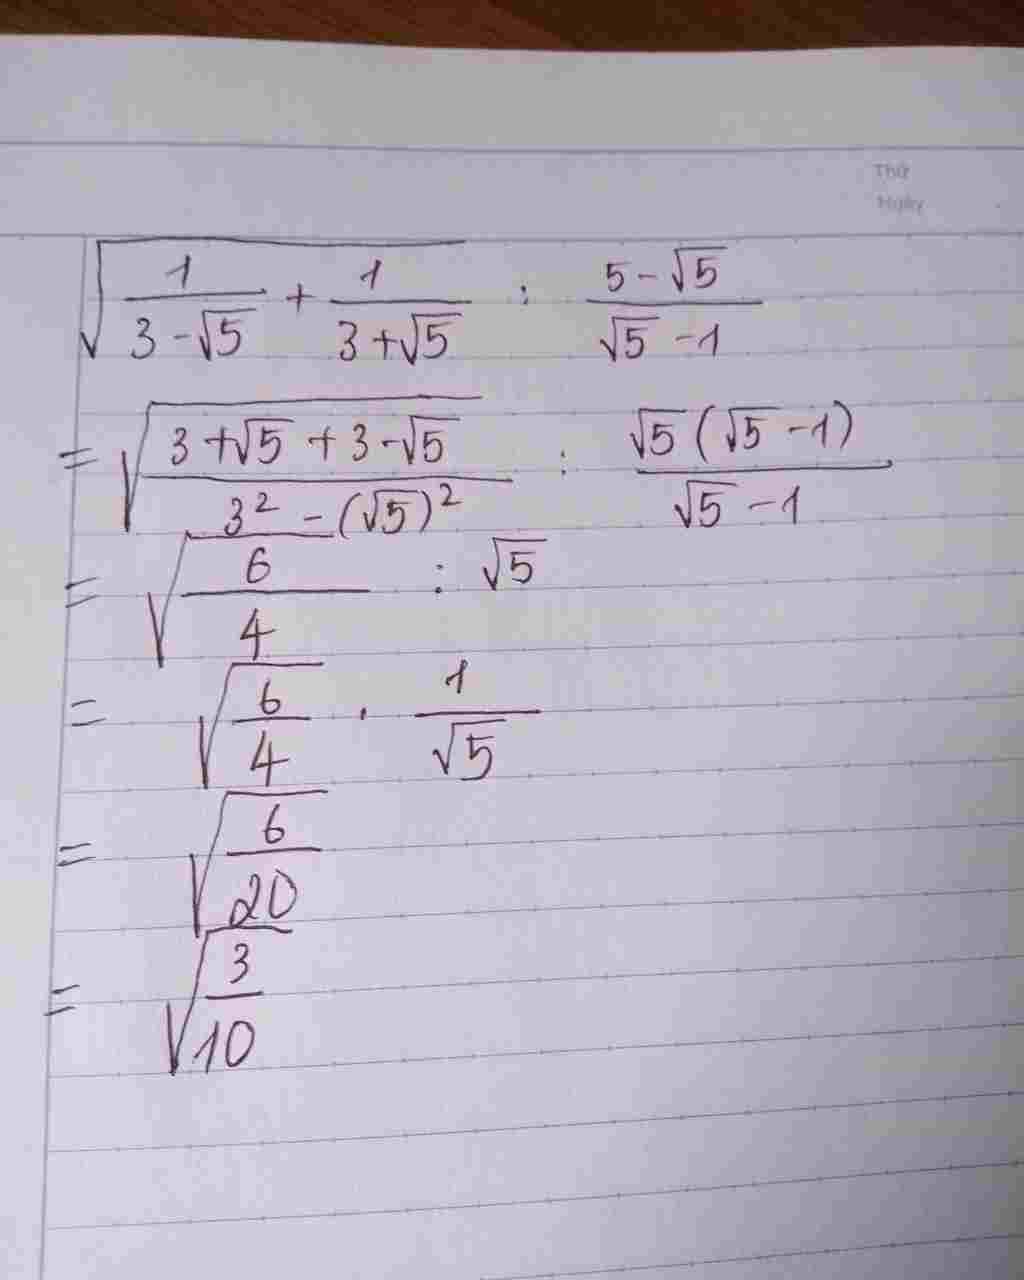 Thứ
Ngày
√(1/(3-√5) + 1/(3+√5)) : (5-√5)/(√5-1)
= √((3+√5+3-√5)/(3²-(√5)²)) : (√5(√5-1))/(√5-1)
= √(6/4) : √5
= √(6/4) . 1/√5
= √(6/20)
= √(3/10)